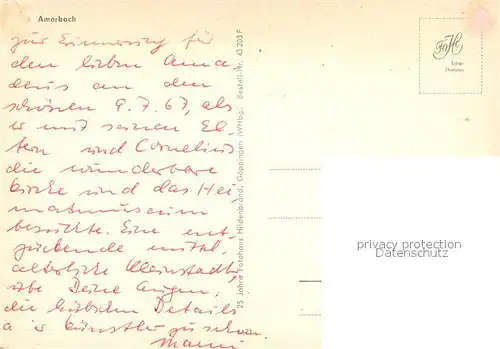 Amorbach
zur Erinnerung für
den lieben Ama-
deus an den
schönen 9.7.67, als
er mit seinen El-
tern und Cornelius
die wunderbare
Kirche und das Hei-
matmuseum
besuchte. Eine ent-
zückende mittel-
alterliche Kleinstadt,
übe Deine Augen,
die hübschen Details
a is Künstler zu sehen.
Mami
25 Jahre Fotohaus Hildenbrand, Göppingen (Wttbg) Bestell-Nr. 43203 F
privacy protection
Datenschutz